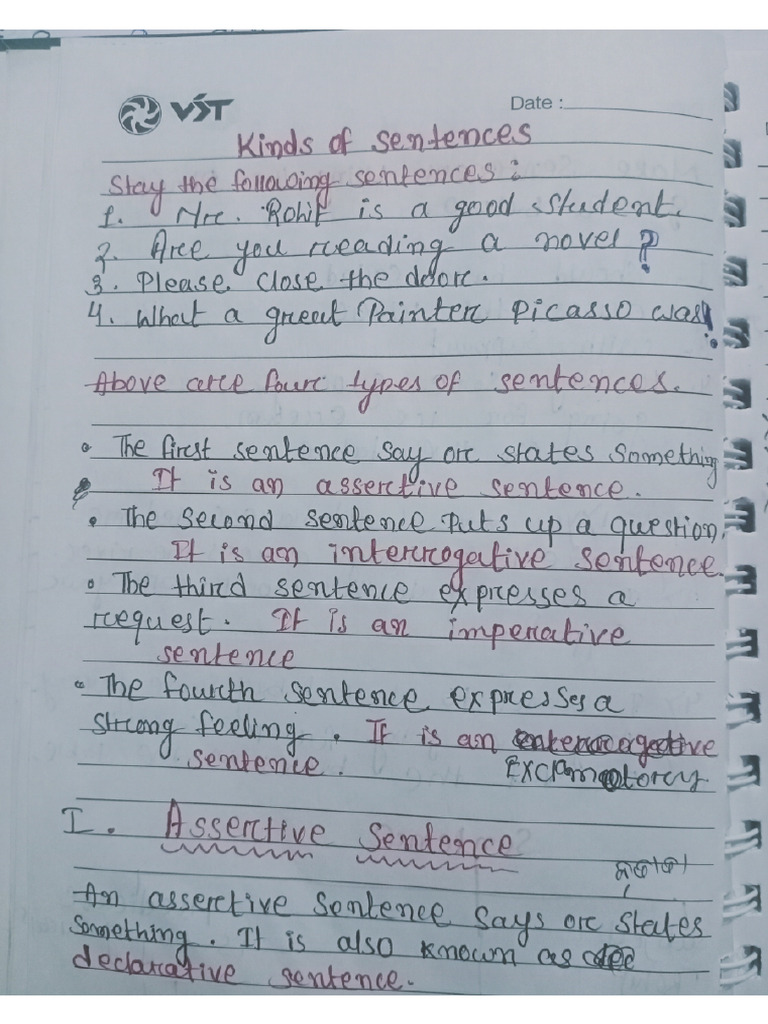 VST
Date :
Kinds of sentences
Stay the following sentences :
1. Mr. Rohit is a good student.
2. Are you reading a novel ?
3. Please close the door.
4. What a great Painter Picasso was!
Above are four types of sentences.
The first sentence say or states Something
It is an assertive sentence.
The second sentence Puts up a question,
It is an interrogative sentence.
The third sentence expresses a
request. It is an imperative
sentence
The fourth sentence expresses a
Strong feeling. It is an
sentence.
I. Assertive Sentence
An assertive sentence says or states
Something. It is also known as
declarative sentence.